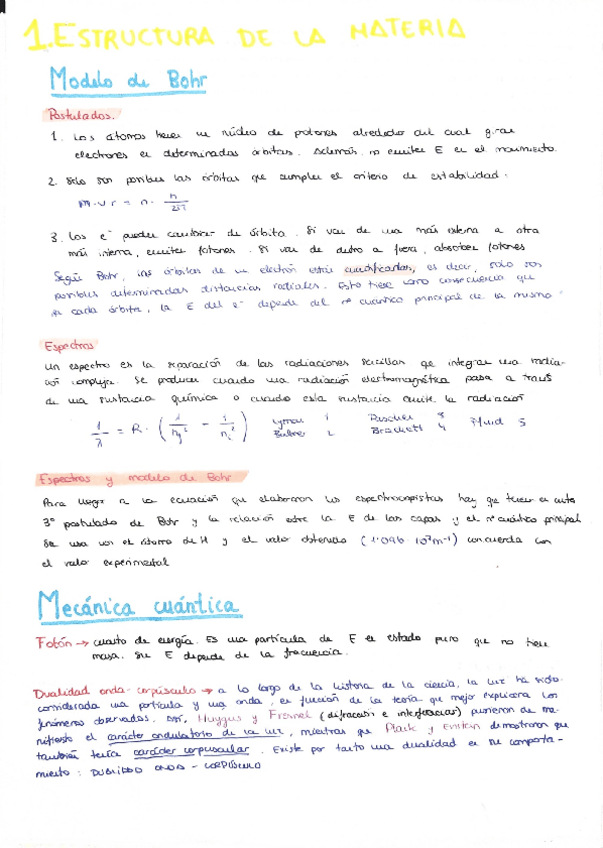 1. ESTRUCTURA DE LA MATERIA
Modelo de Bohr
Postulados.
1. Los átomos tienen un núcleo de protones alrededor del cual giran
electrones en determinadas órbitas. Además, no emiten E en el movimiento.
2. Solo son posibles las órbitas que cumplen el criterio de estabilidad:
m·v·r = n · h/2π
3. Los e⁻ pueden cambiar de órbita. Si van de una más externa a otra
más interna, emiten fotones. Si van de dentro a fuera, absorben fotones
Según Bohr, las órbitas de un electrón están cuantificadas, es decir, solo son
posibles determinadas distancias radiales. Esto tiene como consecuencia que
en cada órbita, la E del e⁻ depende del nº cuántico principal de la misma
Espectros
Un espectro es la separación de las radiaciones sencillas que integran una radia-
ción compleja. Se producen cuando una radiación electromagnética pasa a través
de una sustancia química o cuando esta sustancia emite la radiación
1/λ = R · (1/n₁² - 1/n₂²) Lyman 1 Paschen 3 Pfund 5
Balmer 2 Brackett 4
Espectros y modelo de Bohr
Para llegar a la ecuación que elaboraron los espectroscopistas hay que tener en cuenta
3º postulado de Bohr y la relación entre la E de las capas y el nº cuántico principal
Se usa con el átomo de H y el valor obtenido (1'096·10⁷m⁻¹) concuerda con
el valor experimental
Mecánica cuántica
Fotón → cuanto de energía. Es una partícula de E en estado puro que no tiene
masa. Su E depende de la frecuencia.
Dualidad onda-corpúsculo → a lo largo de la historia de la ciencia, la luz ha sido
considerada una partícula y una onda, en función de la teoría que mejor explicara los
fenómenos observados. Así, Huygus y Fresnel (difracción e interferencias) pusieron de ma-
nifiesto el carácter ondulatorio de la luz, mientras que Plank y Einstein demostraron que
también tenía carácter corpuscular. Existe por tanto una dualidad en su comporta-
miento: DUALIDAD ONDA - CORPÚSCULO